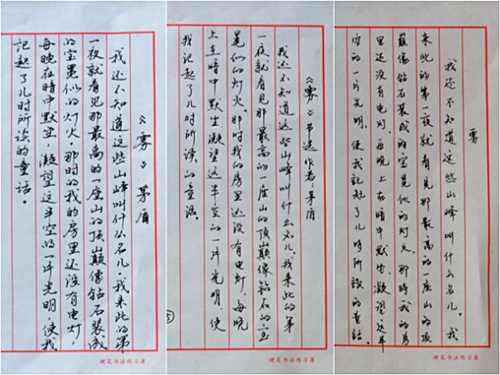 《雾》茅盾
我还不知道这些山峰叫什么名儿,我来此的第
一夜就看见那最高的一座山的顶巅像钻石装成
的宝冕似的灯火。那时的我的房里还没有电灯,
每晚在暗中默坐,凝望这半空的一片光明,使我
记起了儿时所读的童话。
硬笔书法练习簿
《雾》节选 作者:茅盾
我还不知道这些山峰叫什么名儿,我来此的第
一夜就看见那最高的一座山的顶巅像钻石的宝
冕似的灯火。那时我的房里还没有电灯,每晚
上在暗中默坐凝望这半空的一片光明,使
我记起了儿时所读的童话。
雾
我还不知道这些山峰叫什么名儿,我
来此的第一夜就看见那最高的一座山的顶
巅像钻石装成的宝冕似的灯火。那时我的房
里还没有电灯,每晚上在暗中默坐,凝望这半
空的一片光明,使我记起了儿时所读的童话。
硬笔书法练习簿